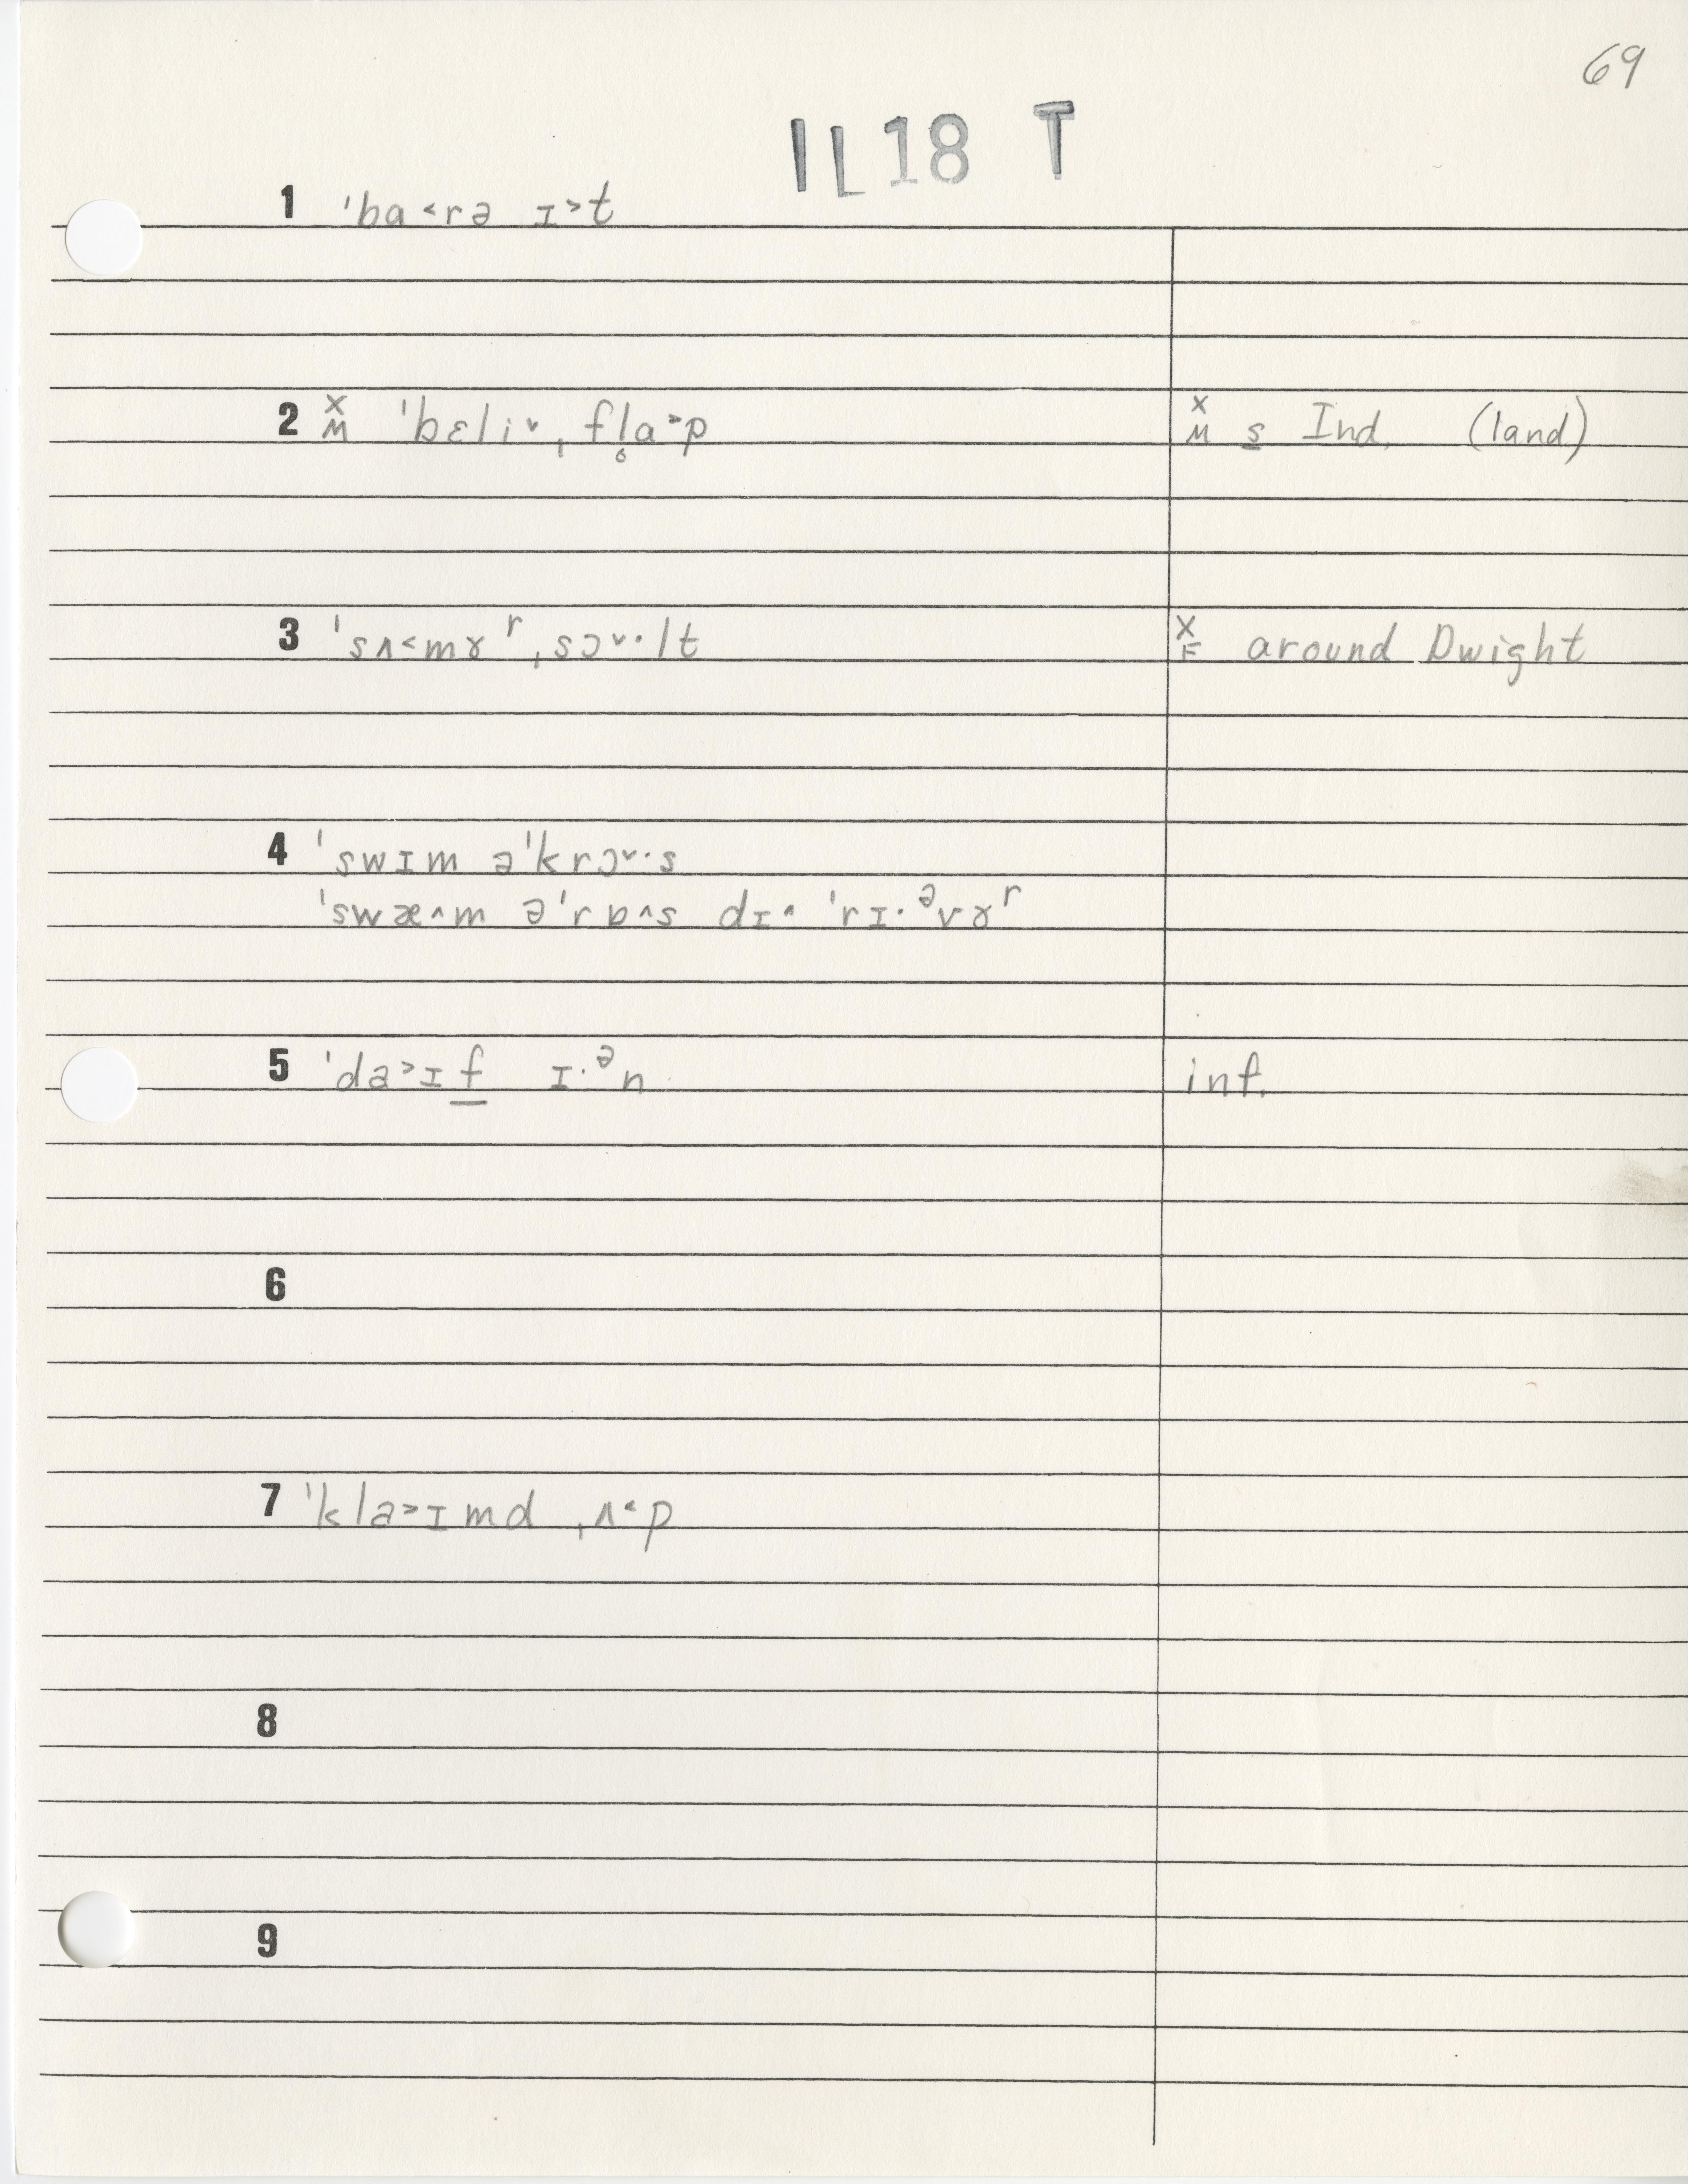 69
IL18 T
1 ˈba˂rə ɪ˃t
2 x M ˈbɛli˅ˌfl̥a˃p x M s̲ Ind. (land)
3 ˈsʌ˂mɤʳˌsɔ˅·lt x F around Dwight
4 ˈswɪm əˈkrɔ˅·s
ˈswæ˄m əˈrɒ˄s dɪ˄ ˈrɪ·ᵊvɤʳ
5 ˈda˃ɪf̲ ɪ·ᵊn inf.
6
7 ˈkla˃ɪmd ˌʌ˂p
8
9